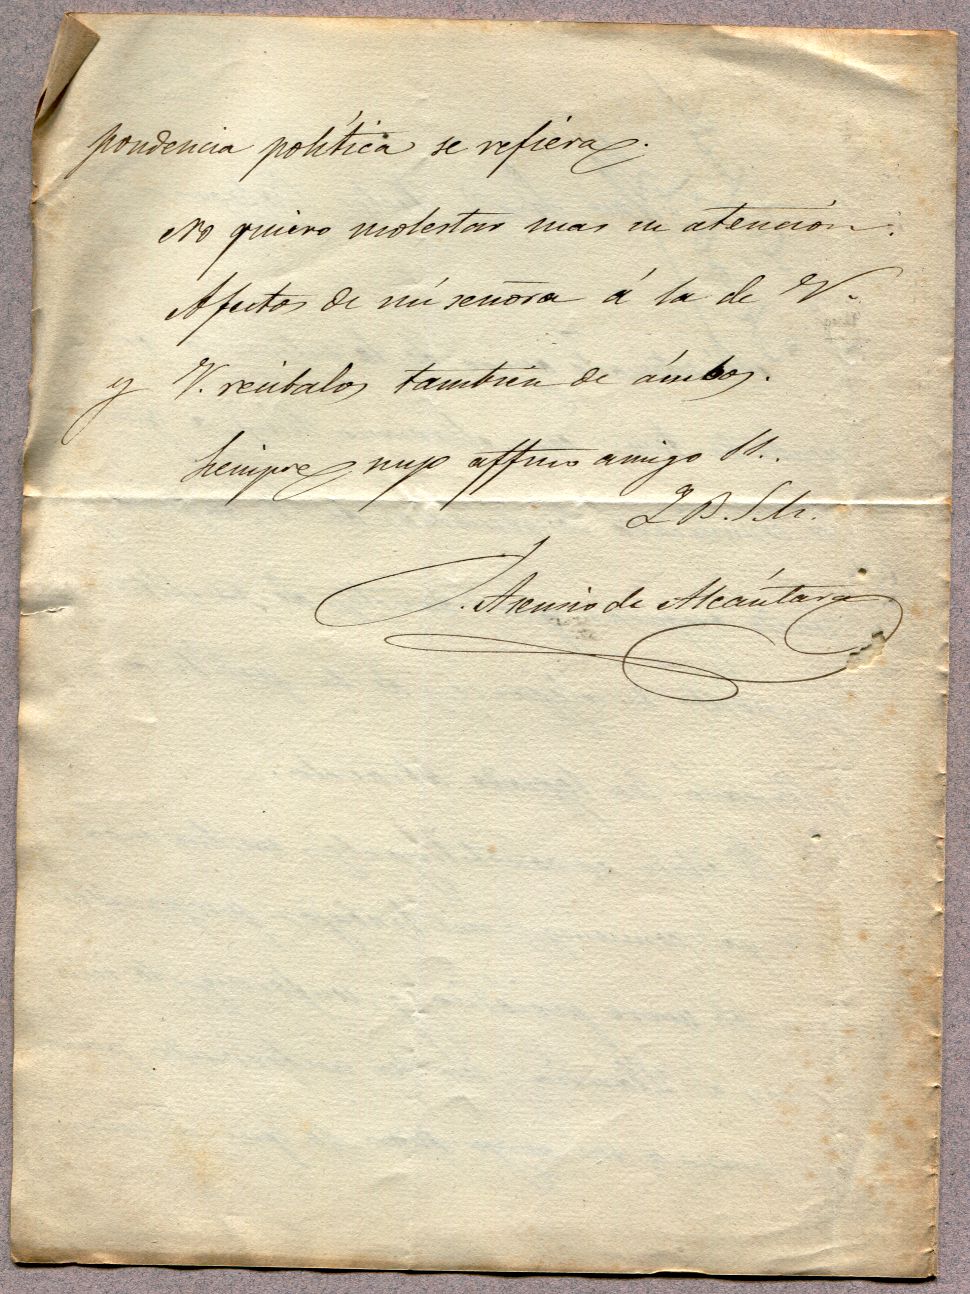 pondencia política se refiera.
No quiero molestar mas su atención.
Afectos de mi señora á la de V.
y V. recíbalos también de ámbos.
Siempre suyo affmo amigo SS.
Q B. S. M.
J. Asensio de Alcántara